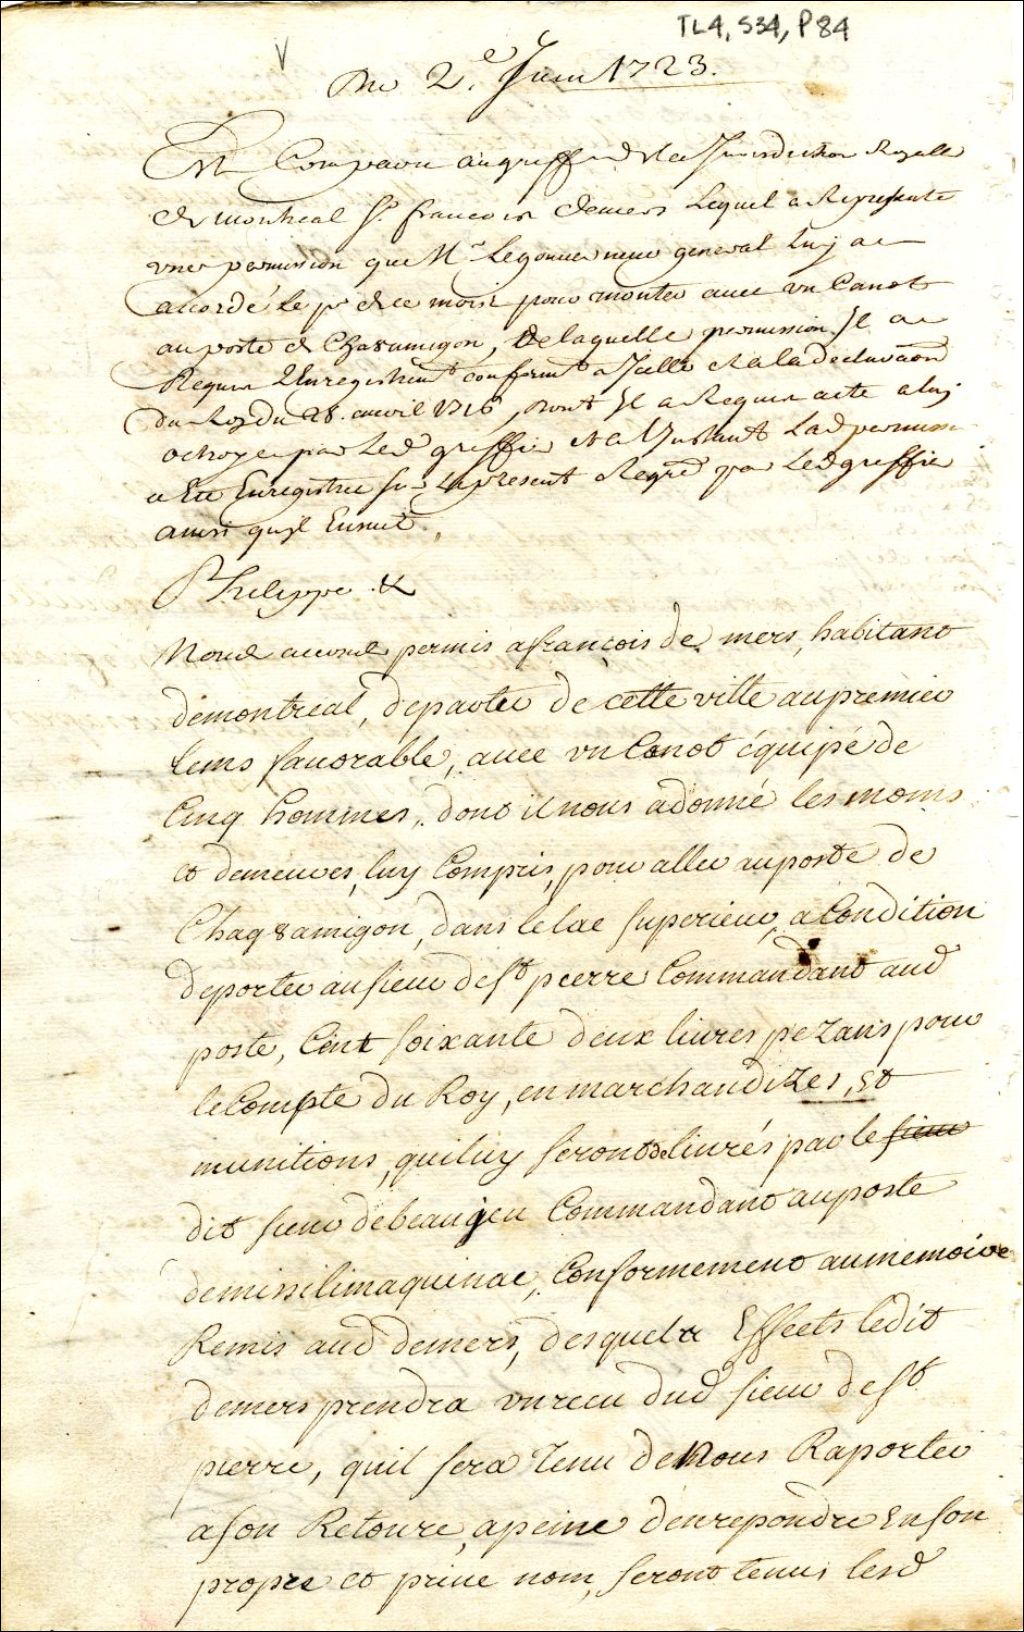 TL4, S34, P84
V
Du 2.e Juin 1723.
Est Comparu au greffe de la Jurisdiction Royalle
de montreal Sr. francois demers Lequel a Representé
une permission que Mr. Le gouverneur general luy a
accordé le pr de ce mois pour monter avec un Canot
au poste de Cha8amigon, De laquelle permission Il a
Requis l'Enregistremt conformt a Icelle et a la declaraon
du Roy du 28. avril 1716, dont Il a Requis acte a luy
octroyé par Led greffier et a l'Instant Lad permission
a Eté Enregistrée sur Le present Regre par Led greffier
ainsi qu'Il Ensuit.
Philippe &
Nous avons permis a françois de mers, habitant
demontreal, departir de cette ville au premier
tems favorable, avec un Canot équipé de
Cinq hommes, dont il nous a donné les noms
et demeures, luy Compris, pour aller au poste de
Chag8amigon, dans le lac superieur, a Condition
deporter au sieur de St pierre Commandant aud
poste, Cent soixante deux livres pezans pour
le Compte du Roy, en marchandizes, et
munitions, qui luy seront delivrés par le sieur
dit sieur debeaujeu Commandant au poste
demissilimaquinac, Conformement au memoire
Remis aud demers, desquels Effects ledit
demers prendra un recu dud sieur de St
pierre, quil sera Tenu de Nous Raporter
a son Retour, a peine d'en repondre En son
propre et privé nom, seront tenus lesd